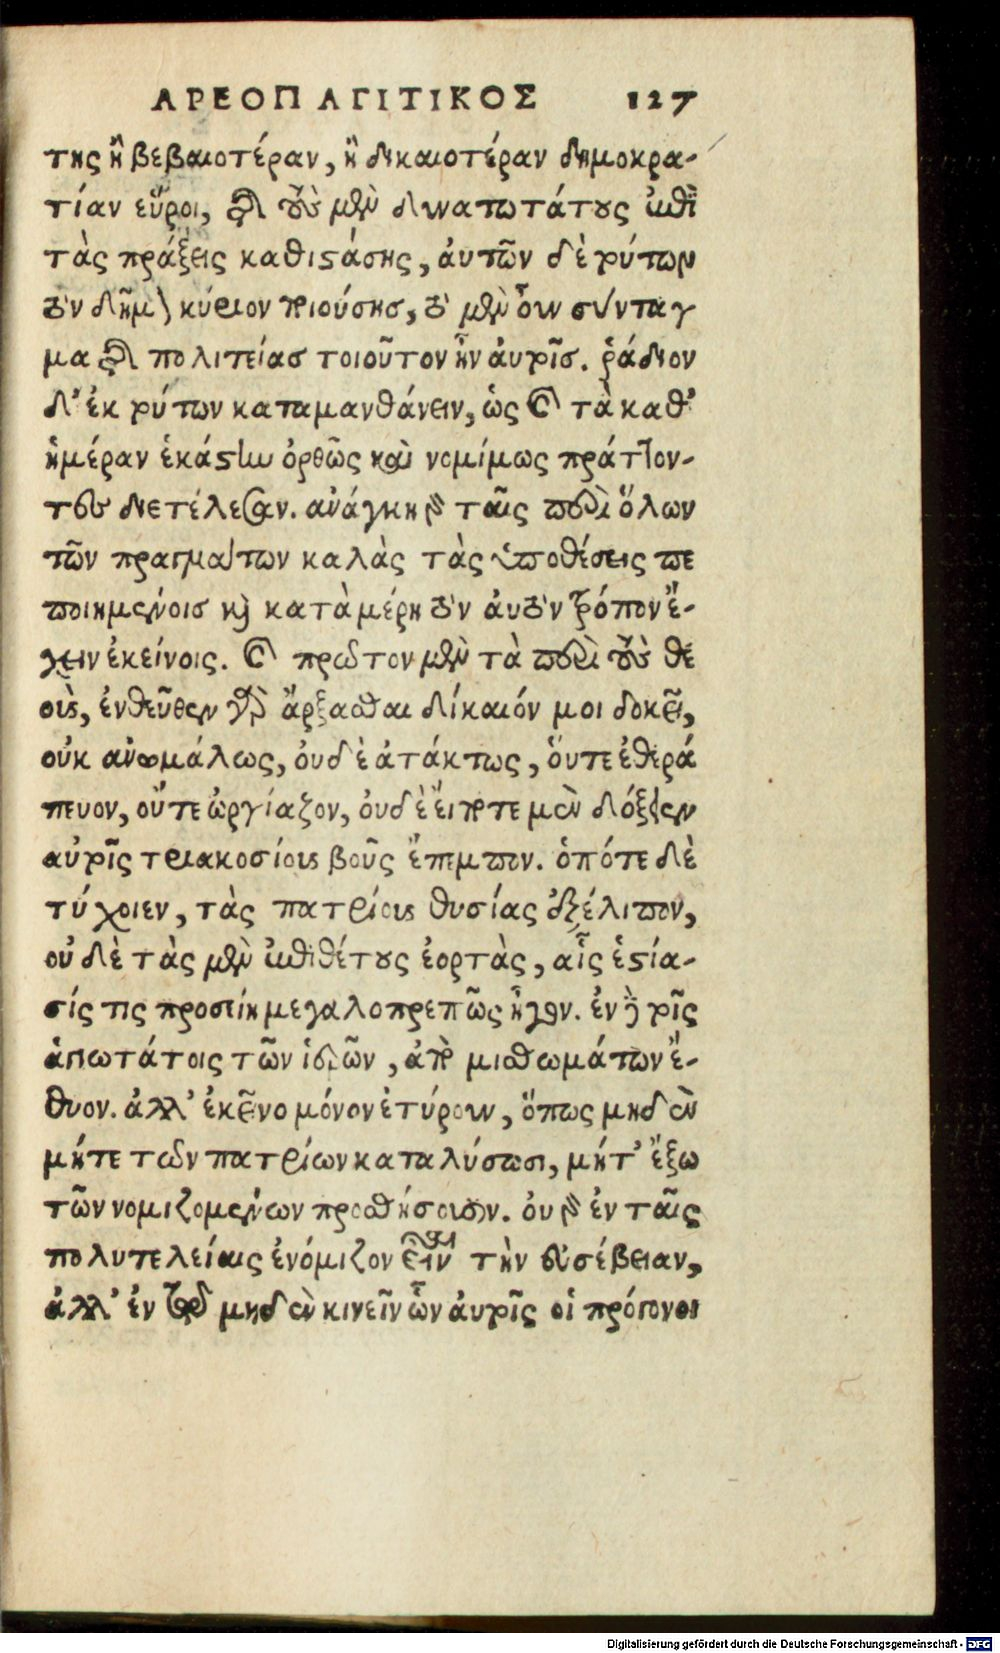 ΑΡΕΟΠΑΓΙΤΙΚΟΣ 127
της ἢ βεβαιοτέραν, ἢ δικαιοτέραν δημοκρα-
τίαν εὕροι, τῆς τοὺς μὲν δυνατωτάτους ἐπὶ
τὰς πράξεις καθιστάσης, αὐτῶν δὲ τούτων
τὸν δῆμον κύριον ποιούσης, τὸ μὲν οὖν σύνταγ
μα τῆς πολιτείας τοιοῦτον ἦν αὐτοῖς. ῥάδιον
δ' ἐκ τούτων καταμανθάνειν, ὡς καὶ τὰ καθ'
ἡμέραν ἑκάστην ὀρθῶς καὶ νομίμως πράττον-
τες διετέλεσαν. ἀνάγκη γὰρ ταῖς περὶ ὅλων
τῶν πραγμάτων καλὰς τὰς ὑποθέσεις πε
ποιημένοις καὶ κατὰ μέρη τὸν αὐτὸν τρόπον ἔ-
χειν ἐκείνοις. καὶ πρῶτον μὲν τὰ περὶ τοὺς θε
οὺς, ἐντεῦθεν γὰρ ἄρξασθαι δίκαιόν μοι δοκεῖ,
οὐκ ἀνωμάλως, οὐδὲ ἀτάκτως, οὔτε ἐθερά
πευον, οὔτε ὠργίαζον, οὐδὲ εἴ ποτε μὲν δόξειεν
αὐτοῖς τριακοσίους βοῦς ἔπεμπον. ὁπότε δὲ
τύχοιεν, τὰς πατρίους θυσίας ἐξέλιπον,
οὐδὲ τὰς μὲν ἐπιθέτους ἑορτὰς, αἷς ἑστία-
σίς τις προσείη μεγαλοπρεπῶς ἦγον. ἐν δὲ τοῖς
ἁγιωτάτοις τῶν ἱερῶν, ἀπὸ μισθωμάτων ἔ-
θυον. ἀλλ' ἐκεῖνο μόνον ἐτήρουν, ὅπως μηδὲν
μήτε τῶν πατρίων καταλύσωσι, μήτ' ἔξω
τῶν νομιζομένων προσθήσουσιν. οὐ γὰρ ἐν ταῖς
πολυτελείαις ἐνόμιζον εἶναι τὴν εὐσέβειαν,
ἀλλ' ἐν τῷ μηδὲν κινεῖν ὧν αὐτοῖς οἱ πρόγονοι
Digitalisierung gefördert durch die Deutsche Forschungsgemeinschaft - DFG